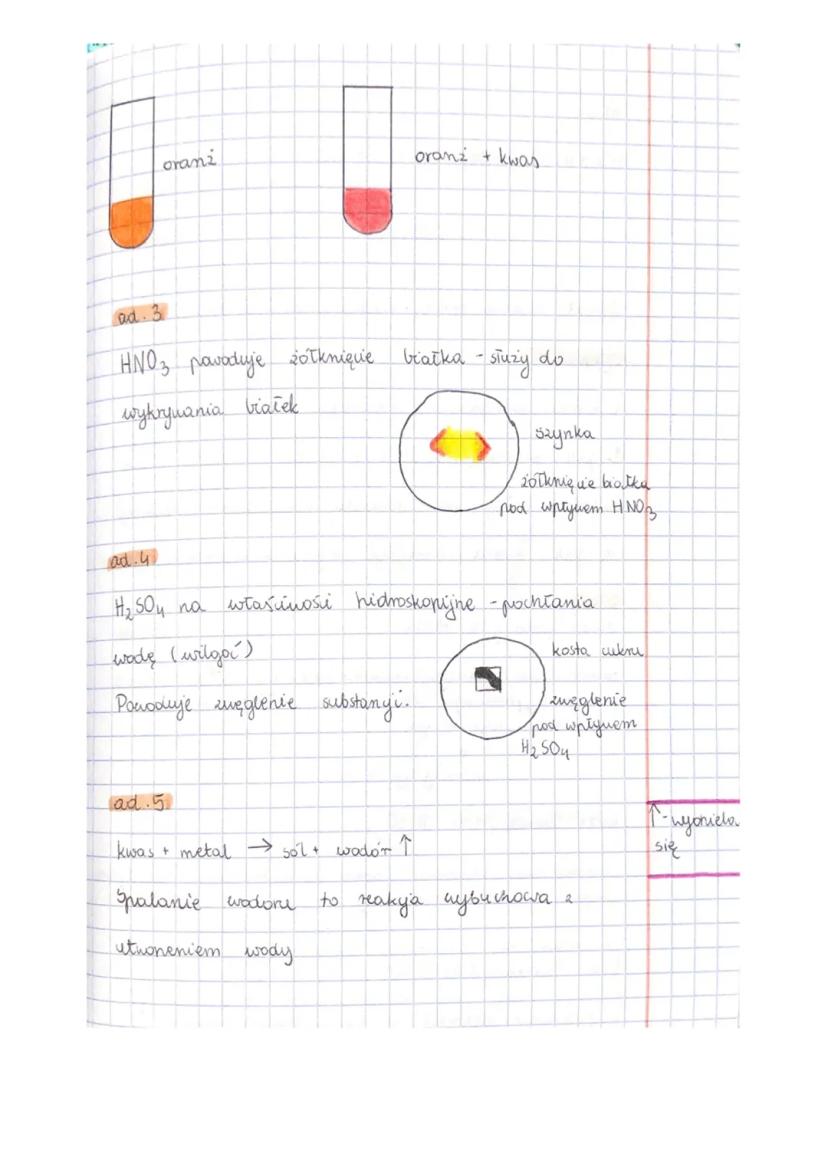 oranż
oranż + kwas
ad. 3
HNO3 powoduje żółknięcie białka - służy do
wykrywania białek
szynka
żółknięcie białka
pod wpływem HNO3
ad. 4
H2SO4 na właściwości hidroskopijne - pochłania
wodę (wilgoć)
kostka cukru
Powoduje zwęglenie substancji.
zwęglenie
pod wpływem
H2SO4
ad. 5
↑ - wydziela
się
kwas + metal → sól + wodór ↑
Spalanie wodoru to reakcja wybuchowa z
utworzeniem wody